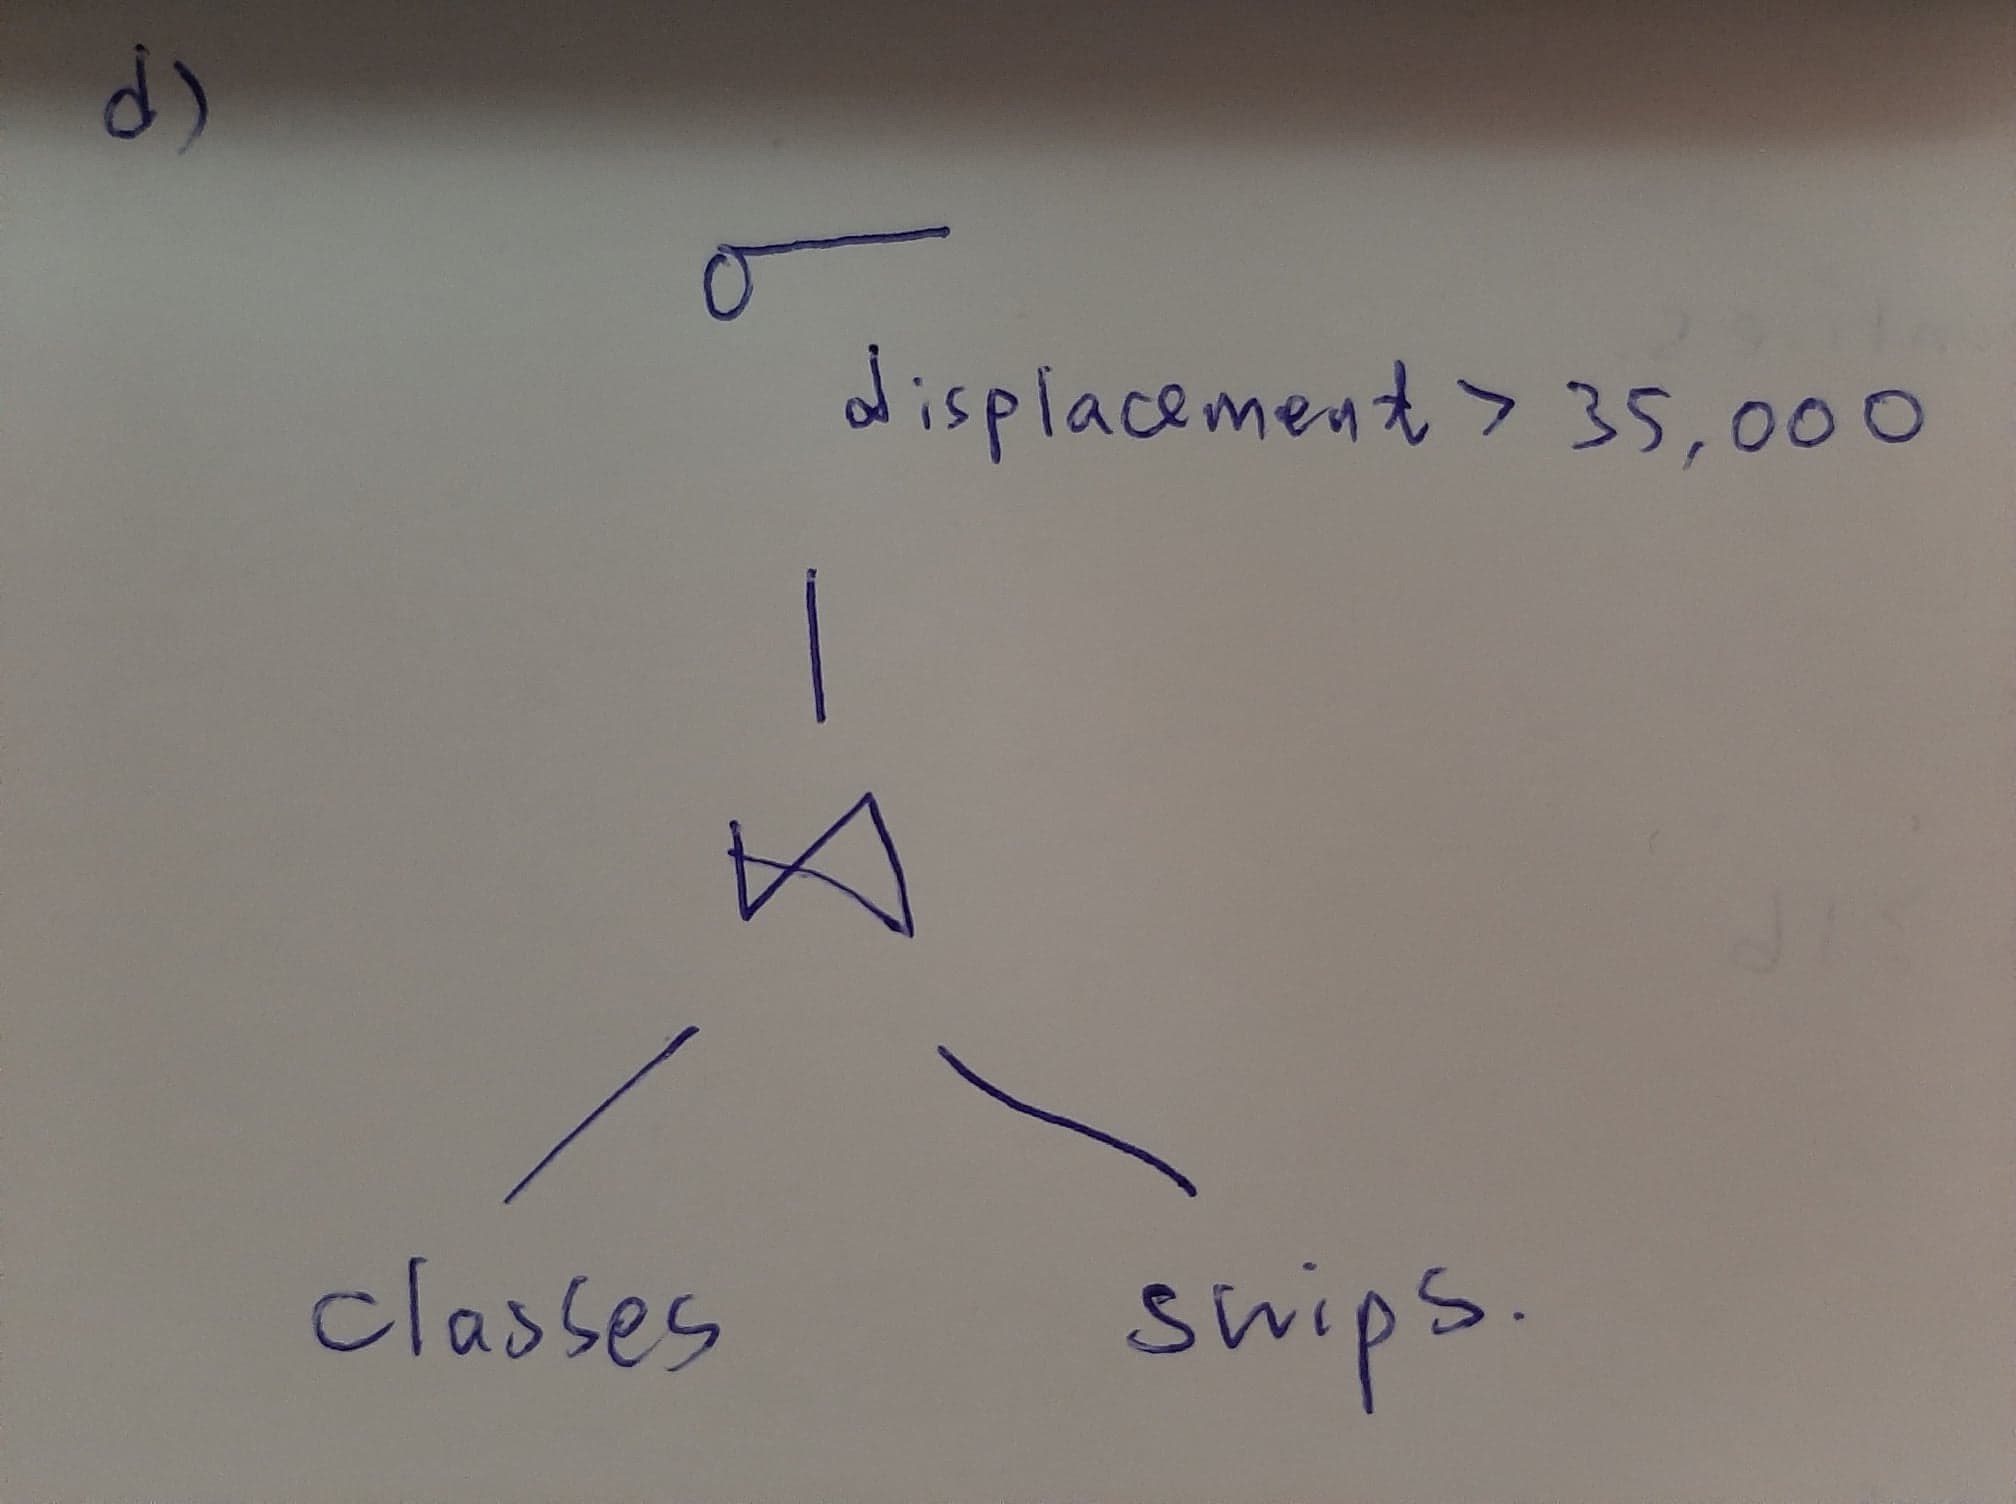 d)
σ
displacement > 35,000
⋈
classes
ships.